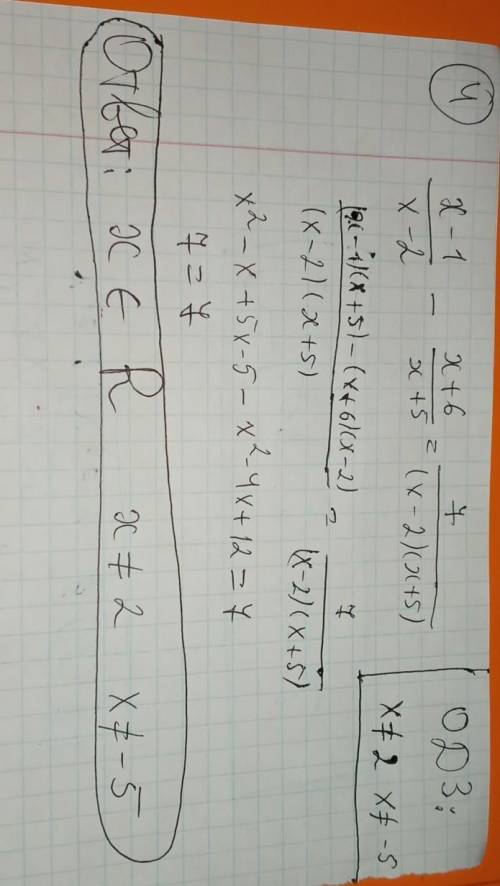 4) (x-1)/(x-2) - (x+6)/(x+5) = 7/((x-2)(x+5))
ОДЗ:
x≠2 x≠-5
((x-1)(x+5)-(x+6)(x-2))/((x-2)(x+5)) = 7/((x-2)(x+5))
x²-x+5x-5-x²-4x+12=7
7=7
Ответ: x∈R x≠2 x≠-5